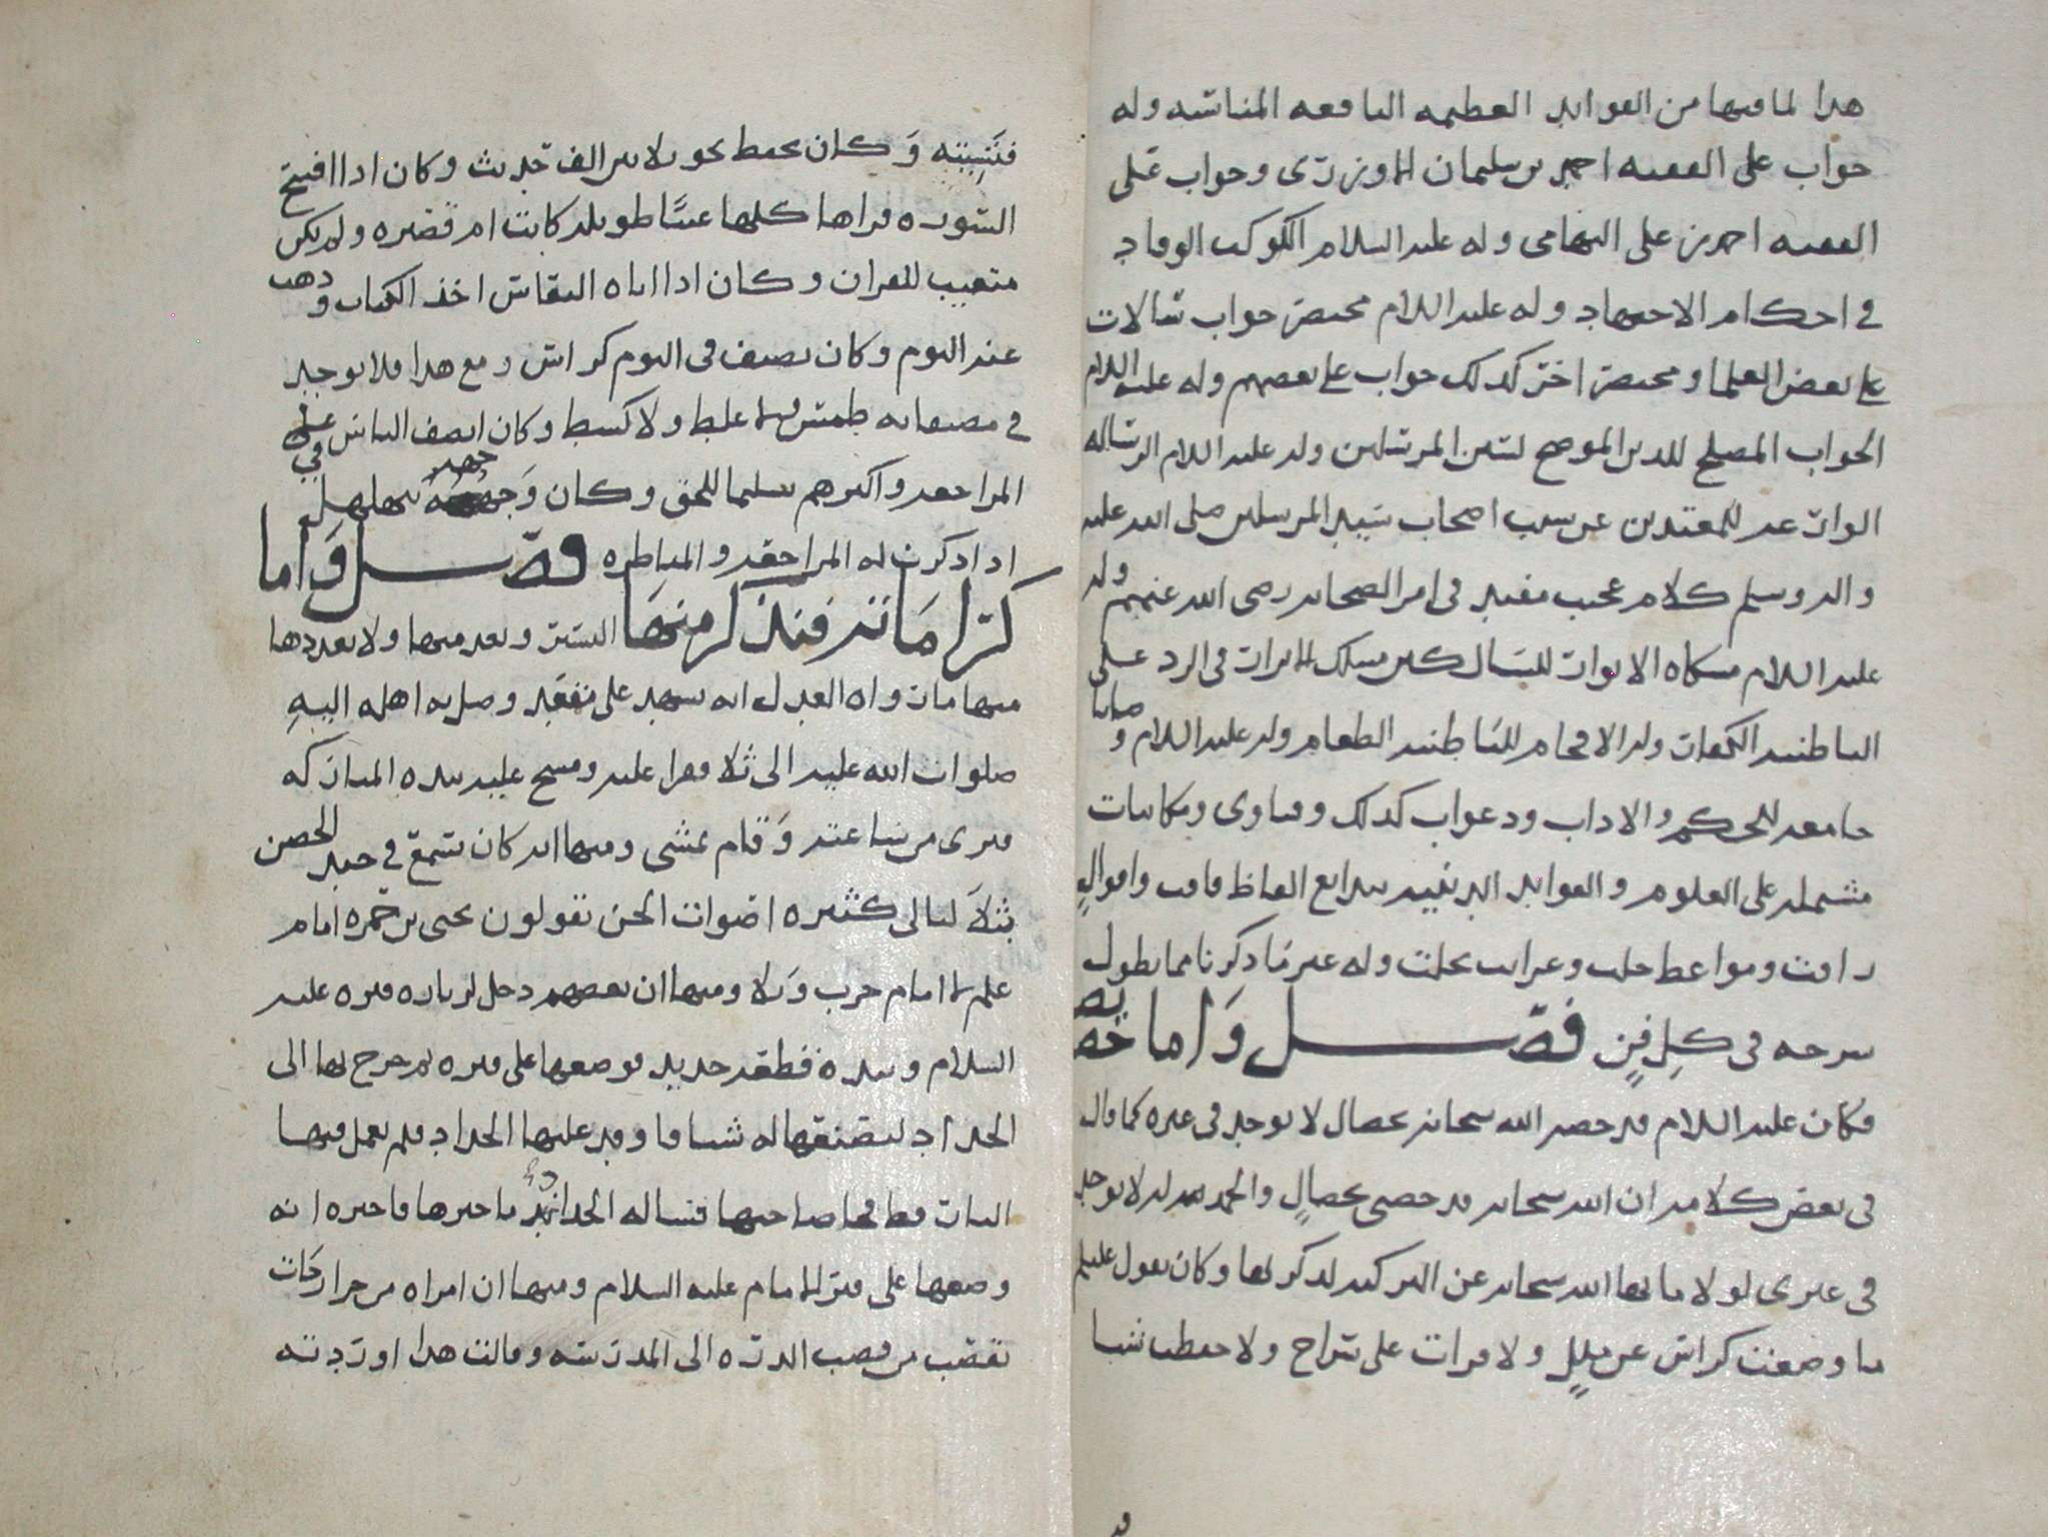 هذا لما فيها من الفوايد العظيمه النافعه المناسبه وله
جواب على الفقيه احمد بن سليمان الاوزري وجواب على
الفقيه احمد بن على التهامى وله عليه السلام الكوكب الوقاد
في احكام الاجتهاد وله عليه السلام مختصر جواب سالات
على بعض العلما ومختصر اخر كذلك جواب على بعضهم وله عليه السلام
الجواب المصلح للدين الموضح لسنن المرسلين وله عليه السلام الرساله
الوازعه للمعتدين عن سب اصحاب سيد المرسلين صلى الله عليه
واله وسلم كلام عجيب مفيد فى امر الصحابه رضى الله عنهم وله
عليه السلام مشكاه الانوار للسالكين مسالك الابرار فى الرد على
الباطنيه الكفار وله الافحام للباطنيه الطغام وله عليه السلام وصايا
جامعه للحكم والاداب ودعوات كذلك وفتاوى ومكاتبات
مشتمله على العلوم والفوايد الدينيه ببدايع الفاظ فاقت واقوال
راقت ومواعظ جلت وغرايب تجلت وله غير ما ذكرنا مما يطول
شرحه فى كل فن فصل واما خصايصه
فكان عليه السلام قد خصه الله سبحانه بخصال لا توجد فى غيره كما قال
فى بعض كلامه ان الله سبحانه قد خصنى بخصال والحمد لله لا توجد
فى غيرى لولا ما نها الله سبحانه عن التزكيه لذكرتها وكان يقول عليلم
ما وضعت كراس عن ملل ولا قرات على سراج ولا حفظت شيا
فنسيته وكان يحفظ نحو ثلاثين الف حديث وكان اذا افتتح
السوره قراها كلها غيبا طويله كانت ام قصيره ولم يكن
متغيب للقران وكان اذا اتاه النعاس اخذ الكتاب وذهب
عنه النوم وكان يصنف فى اليوم كراس ومع هذا فلا يوجد
في مصنفاته طمس ولا غلط ولا كشط وكان انصف الناس على
المراجعه واكثرهم تسليما للحق وكان وجهه يتهلهل
اذا ذكرت له المراجعه والمناظره فصل واما
كراماته فنذكر منها اليسير وبعد منها ولا نعددها
منها ما رواه العدل انه شهد على مقعد وصل به اهله اليه
صلوات الله عليه الى ثلا فقرا عليه ومسح عليه بيده المباركه
فبرى من ساعته وقام يمشى ومنها انه كان يسمع في حيد الحصن
بثلا ليالى كثيره اصوات الجن يقولون يحيى بن حمزه امام
علم لا امام حرب وبلا ومنها ان بعضهم دخل لزياره قبره عليه
السلام وبيده قطعه حديد فوضعها على قبره ثم خرج بها الى
الحداد ليصنعها له شيا فاوقد عليها الحداد فلم يعمل فيها
النار قط فجا صاحبها فساله الحداد ما خبرها فاخبره انه
وضعها على قبر الامام عليه السلام ومنها ان امراه من حراز جات
بقصب من قصب الذره الى المدرسه وقالت هذا اوردته